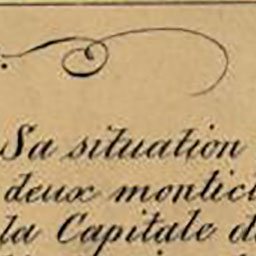 Sa situation
deux montic
la Capitale d